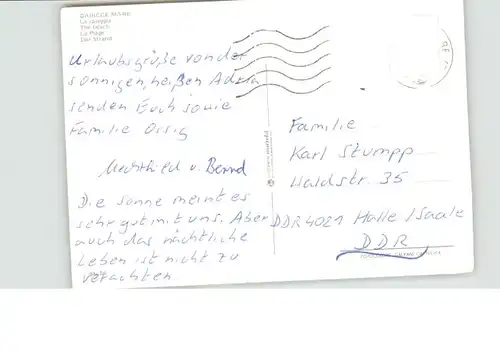 La spiaggia
The beach
La Plage
Der Strand
Urlaubsgrüße von der
sonnigen, heißen Adria
senden Euch sowie
Familie Ossig
Mechthild u. Bernd
Die Sonne meint es
sehr gut mit uns. Aber
auch das nächtliche
Leben ist nicht zu
verachten
Familie
Karl Stumpp
Haldstr. 35
DDR 4021 Halle/Saale
DDR